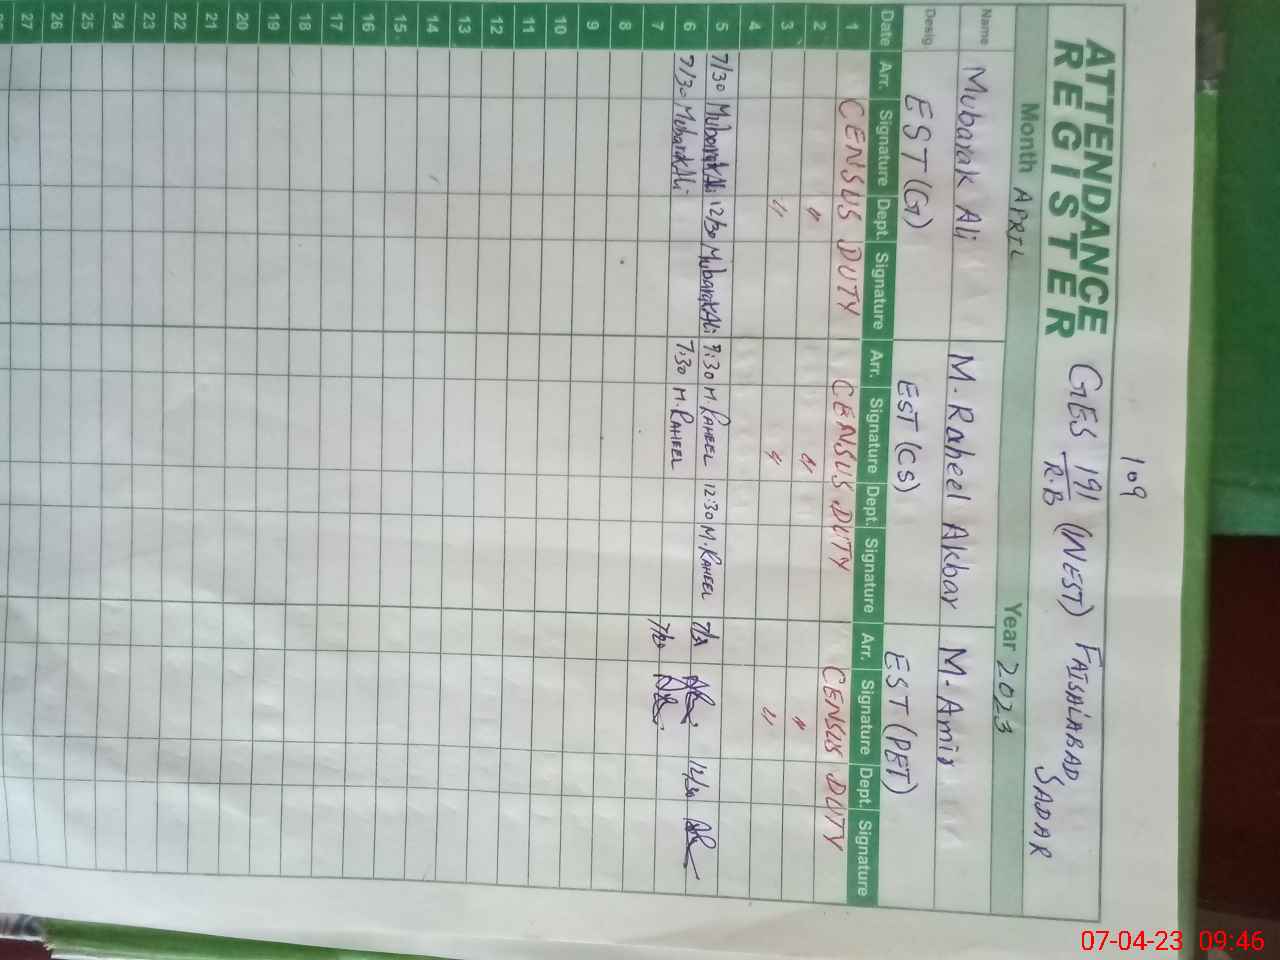 109
ATTENDANCE REGISTER
GES 191/R.B (WEST) FAISALABAD, SADAR
Month APRIL Year 2023
Name Mubarak Ali M. Raheel Akbar M. Amir
Desig. EST (G) EST (CS) EST (PET)
Date Arr. Signature Dept. Signature Arr. Signature Dept. Signature Arr. Signature Dept. Signature
1 CENSUS DUTY CENSUS DUTY CENSUS DUTY
2 " " "
3 " " "
4
5 7/30 Mubarak Ali 12/30 Mubarak Ali 7:30 M. RAHEEL 12:30 M. RAHEEL 12/30
6 7/30 Mubarak Ali 7:30 M. RAHEEL
7
8
9
10
11
12
13
14
15
16
17
18
19
20
21
22
23
24
25
26
27
07-04-23 09:46